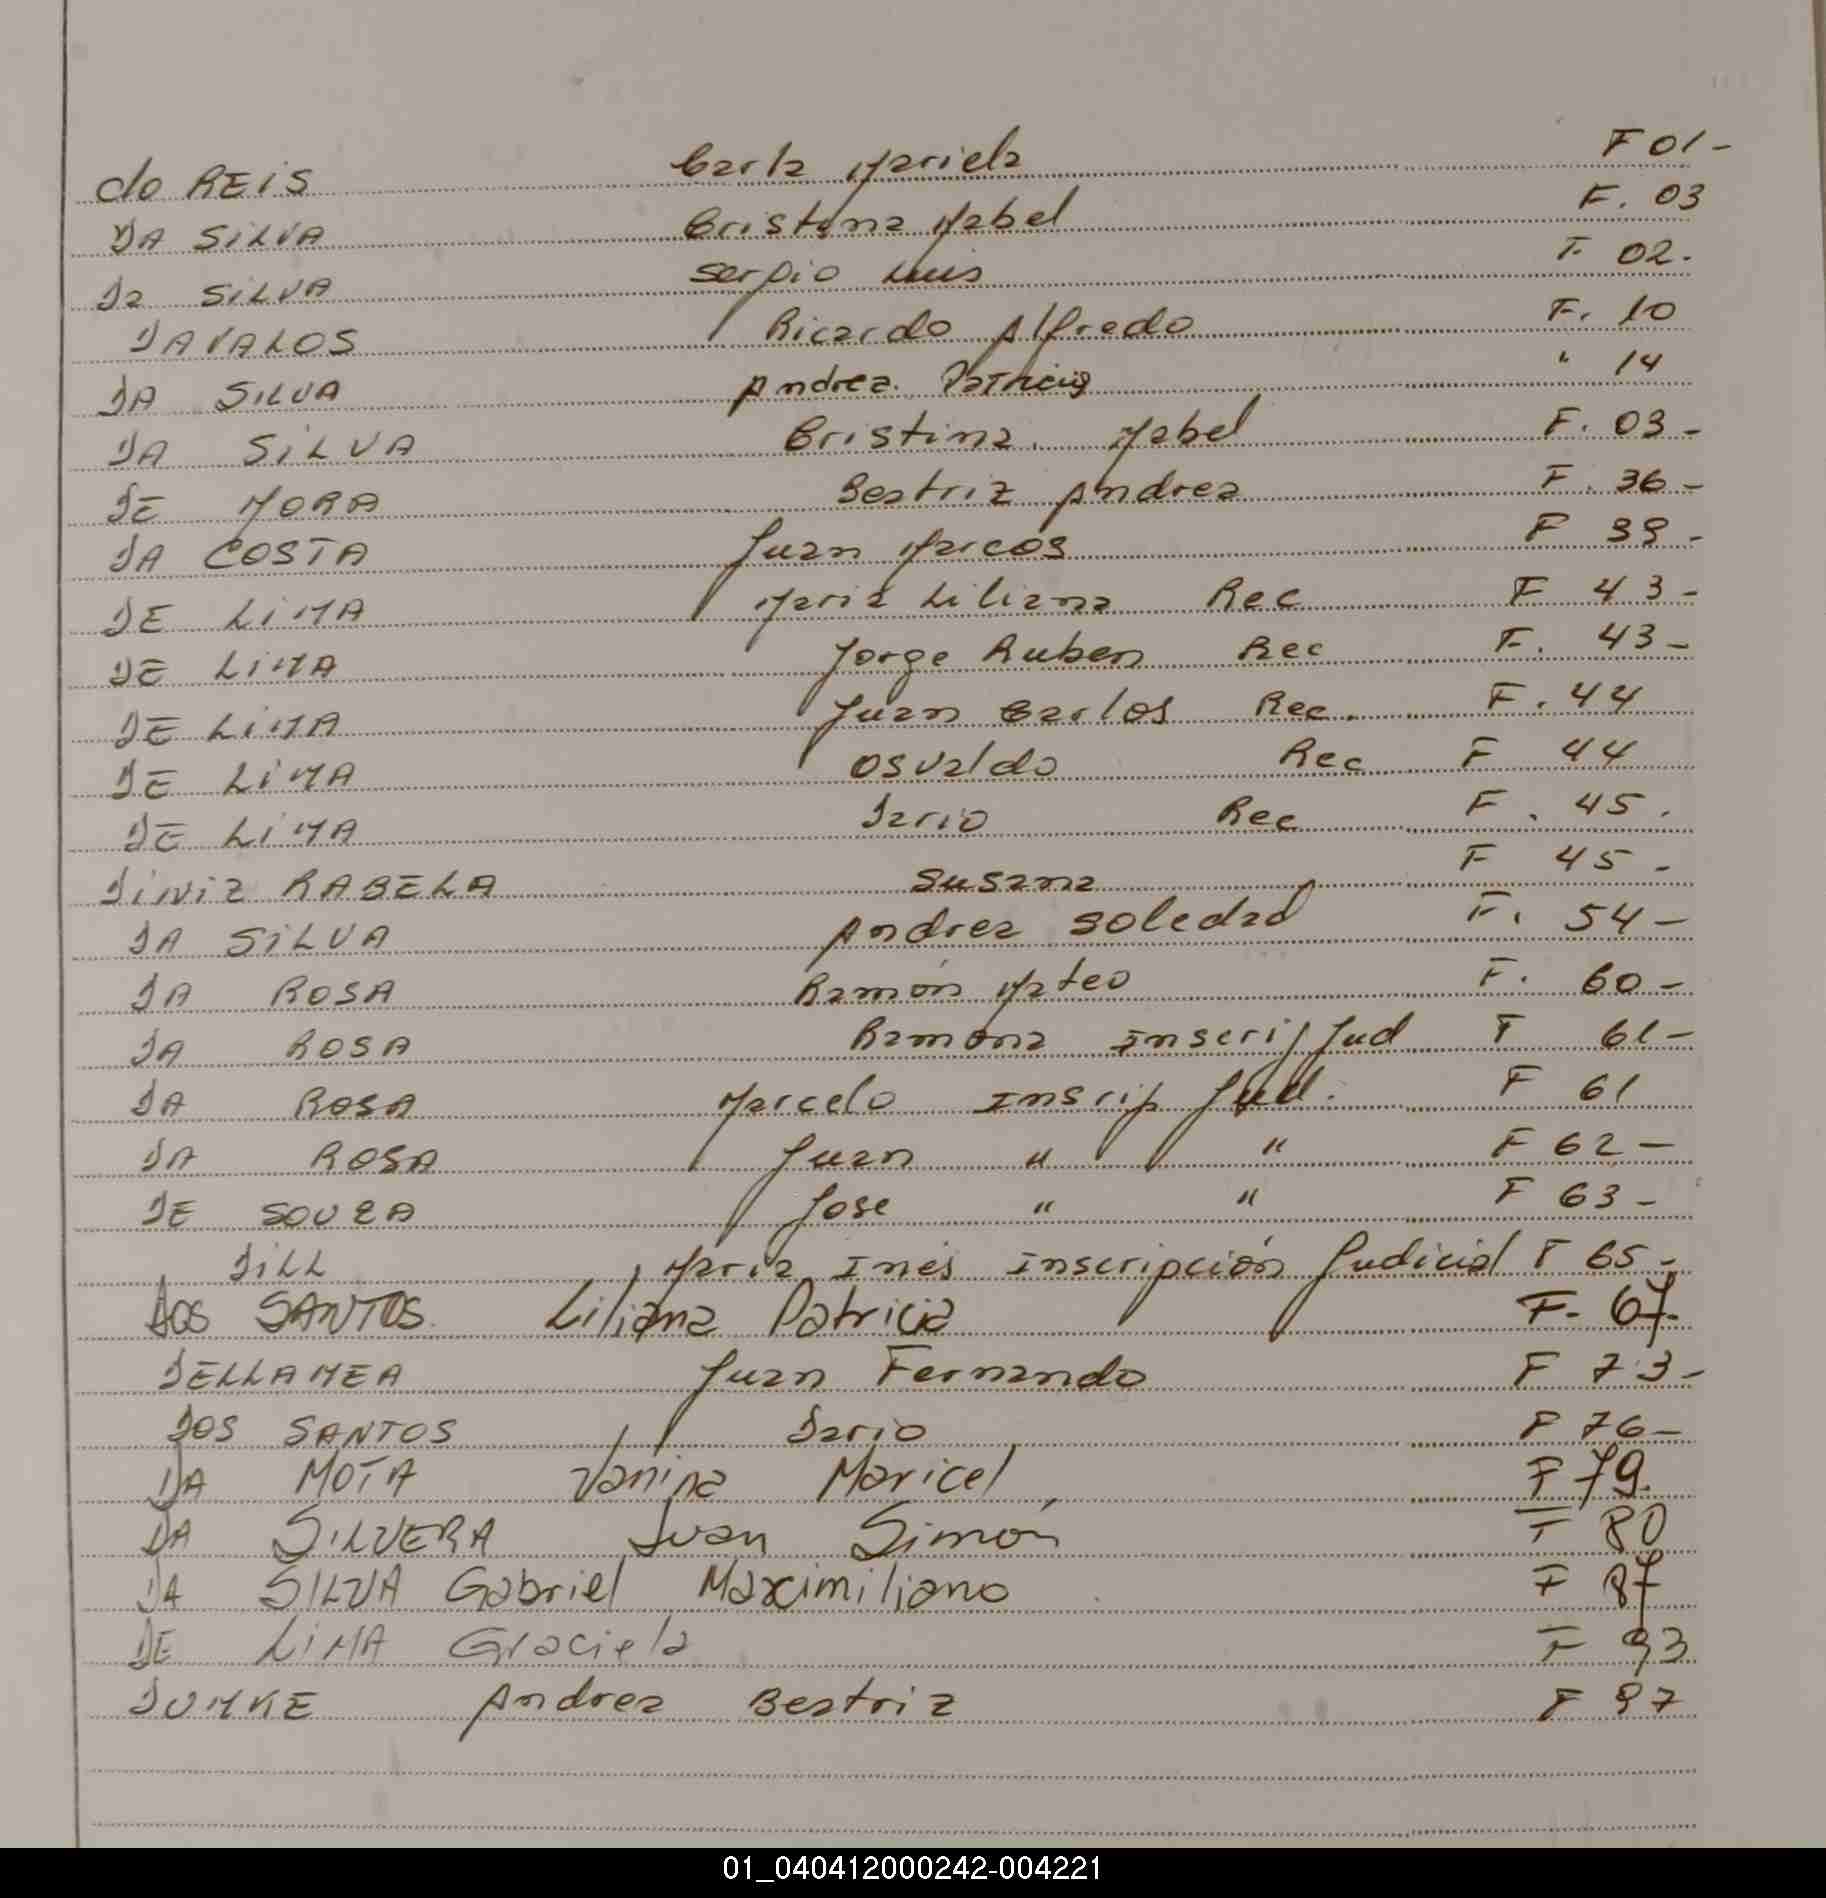 do REIS Carla Mariela F 01-
DA SILVA Cristina Mabel F. 03
Da SILVA Sergio Luis F 02.
DAVALOS Ricardo Alfredo F. 10
DA SILVA Andrea Patricia " 14
DA SILVA Cristina Mabel F. 03-
DE MORA Beatriz Andrea F. 36-
DA COSTA Juan Marcos F 39-
DE LIMA Maria Liliana Rec F 43-
DE LIMA Jorge Ruben Rec F. 43-
DE LIMA Juan Carlos Rec. F. 44
DE LIMA Osvaldo Rec F 44
DE LIMA Dario Rec F. 45.
DINIZ RABELA Susana F 45-
DA SILVA Andrea Soledad F. 54-
DA ROSA Ramón Mateo F. 60-
DA ROSA Ramona Inscrip Jud F 61-
DA ROSA Marcelo Inscrip Jud. F 61
DA ROSA Juan " " F 62-
DE SOUZA Jose " " F 63-
DILL Maria Inés Inscripción Judicial F 65-
DOS SANTOS. Liliana Patricia F- 67-
DELLAMEA Juan Fernando F 73-
DOS SANTOS Dario F 76-
DA MOTA Vanina Maricel F 79.
DA SILVERA Juan Simón F 80
DA SILVA Gabriel Maximiliano F 87
DE LIMA Graciela F 93
DUMKE Andrea Beatriz F 97
01_040412000242-004221